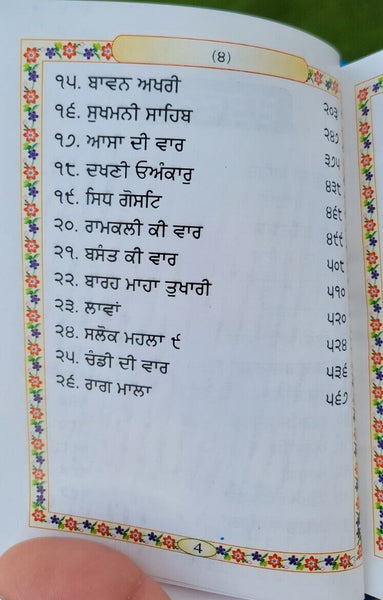 (੪)
੧੫. ਬਾਵਨ ਅਖਰੀ ੨੦੩
੧੬. ਸੁਖਮਨੀ ਸਾਹਿਬ ੨੪੭
੧੭. ਆਸਾ ਦੀ ਵਾਰ ੩੭੫
੧੮. ਦਖਣੀ ਓਅੰਕਾਰੁ ੪੩੮
੧੯. ਸਿਧ ਗੋਸਟਿ ੪੬੮
੨੦. ਰਾਮਕਲੀ ਕੀ ਵਾਰ ੪੯੯
੨੧. ਬਸੰਤ ਕੀ ਵਾਰ ੫੦੮
੨੨. ਬਾਰਹ ਮਾਹਾ ਤੁਖਾਰੀ ੫੧੦
੨੩. ਲਾਵਾਂ ੫੨੦
੨੪. ਸਲੋਕ ਮਹਲਾ ੯ ੫੨੪
੨੫. ਚੰਡੀ ਦੀ ਵਾਰ ੫੩੬
੨੬. ਰਾਗ ਮਾਲਾ ੫੬੭
4